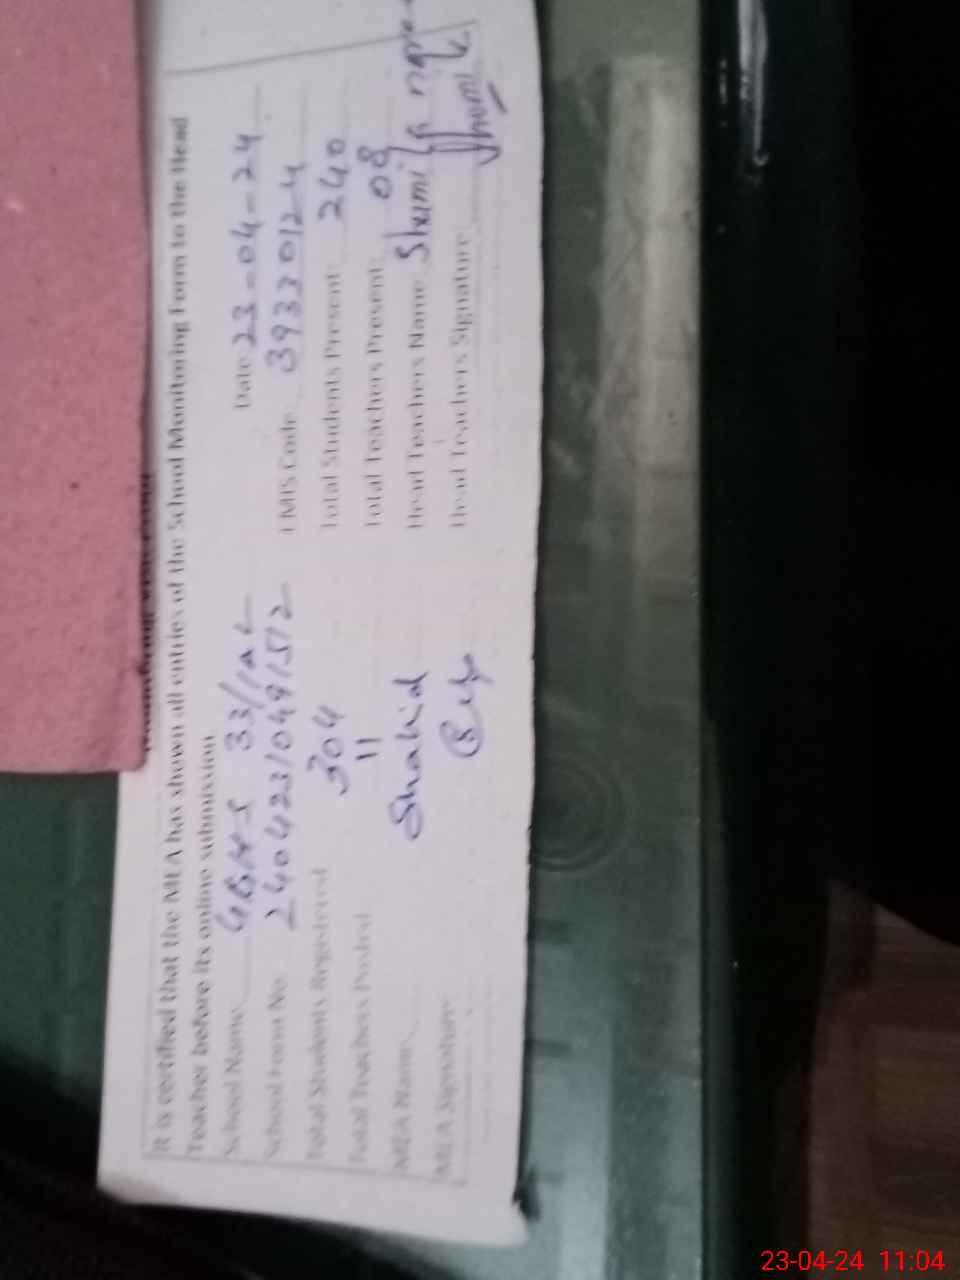 It is certified that the MEA has shown all entries of the School Monitoring Form to the Head
Teacher before its online submission
School Name GGHS 33/1AL Date: 23-04-24
School Form No 2404231049/512 EMIS Code 39320124
Total Students Registered 304 Total Students Present: 240
Total Teachers Posted 11 Total Teachers Present: 08
MEA Name Shahid Head Teachers Name
MEA Signature Head Teachers Signature
23-04-24 11:04